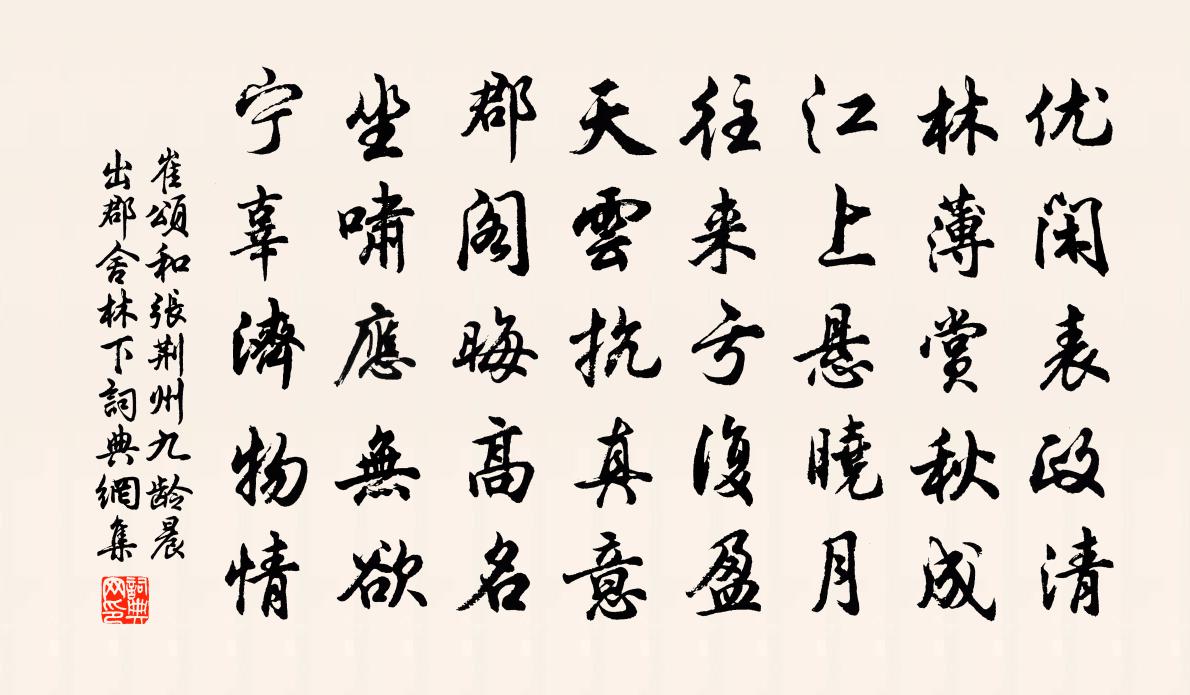 优闲表政清
林薄赏秋成
江上悬曉月
往来亏復盈
天雲抗真意
郡阁晦高名
坐嘯應無欲
宁辜濟物情
崔頌和張荆州九龄晨
出郡舍林下詞典網集
詞典
网印